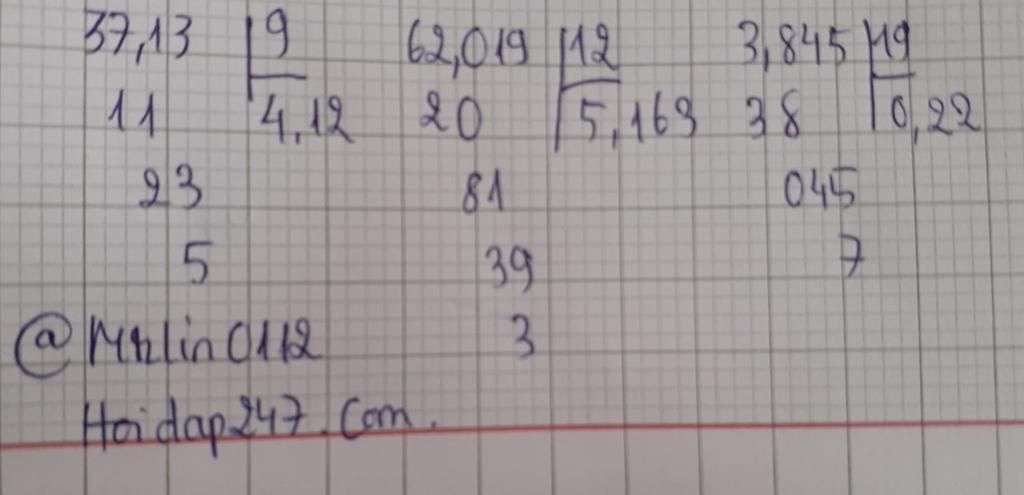 37,13 9 62,019 12 3,845 19
11 4,12 20 5,163 38 0,22
23 81 045
5 39 7
@Mrlin0112 3
Hoidap247.Com.